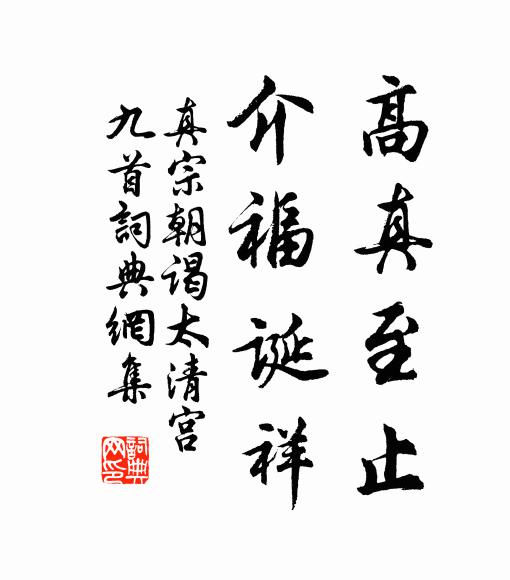 高真至止
介福誕祥
真宗朝谒太清宫
九首詞典網集
詞典
网印